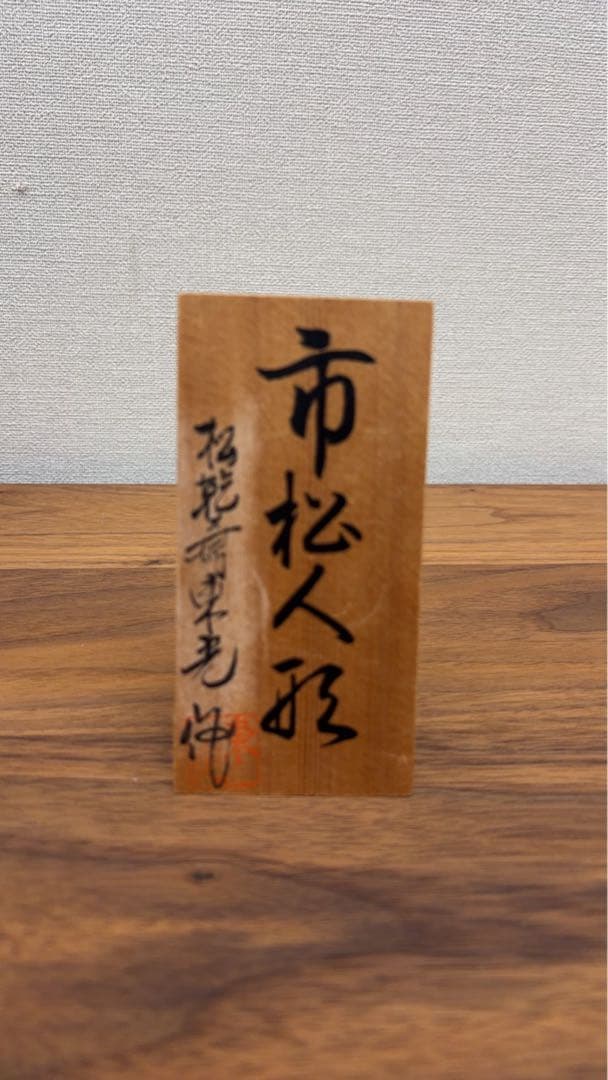 市松人形
松乾斎東光作